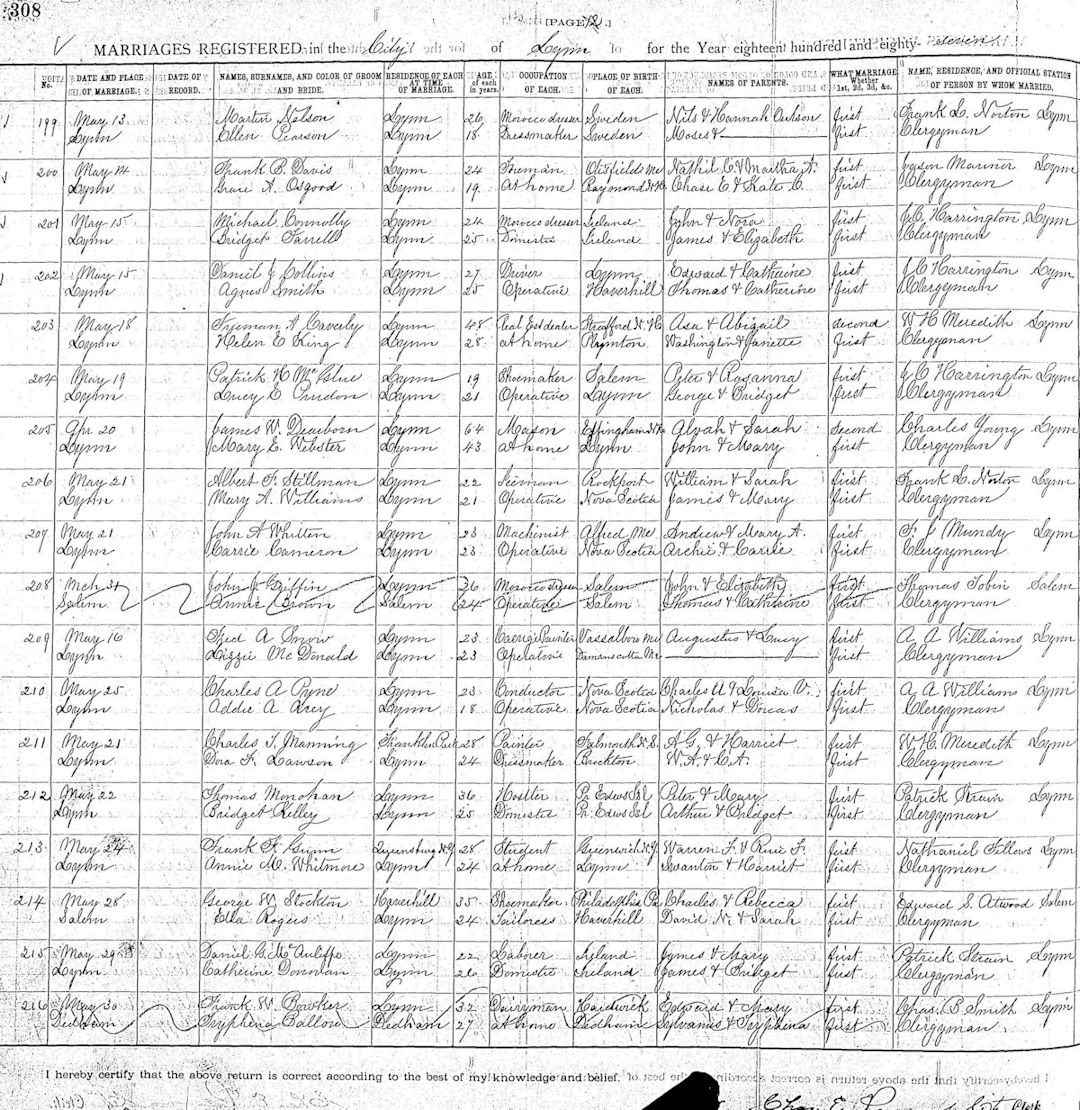 308
[PAGE 12.]
MARRIAGES REGISTERED in the City of Lynn for the Year eighteen hundred and eighty-seven
No. DATE AND PLACE OF MARRIAGE. DATE OF RECORD. NAMES, SURNAMES, AND COLOR OF GROOM AND BRIDE. RESIDENCE OF EACH AT TIME OF MARRIAGE. AGE of each in years. OCCUPATION OF EACH. PLACE OF BIRTH OF EACH. NAMES OF PARENTS. WHAT MARRIAGE Whether 1st, 2d, 3d, &c. NAME, RESIDENCE, AND OFFICIAL STATION OF PERSON BY WHOM MARRIED.
199 May 13 Martin Nelson Lynn 26 Morocco dresser Sweden Nils & Hannah first Frank L. Norton Lynn
Lynn Ellen Pearson Lynn 18 Dressmaker Sweden Moses & first Clergyman
200 May 14 Frank B. Davis Lynn 24 Otisfield Me Nath'l C & Martha A. first Jason Mariner Lynn
Lynn Grace A. Osgood Lynn 19 at home Raymond N.H. Chase E & Kate C. first Clergyman
201 May 15 Michael Connolly Lynn 24 Morocco dresser Ireland John & Nora first J.C. Harrington Lynn
Lynn Bridget Farrell Lynn 25 Domestic Ireland James & Elizabeth first Clergyman
202 May 15 Daniel J Collins Lynn 27 Driver Lynn Edward & Catherine first J C Harrington Lynn
Lynn Agnes Smith Lynn 25 Operative Haverhill Thomas & Catherine first Clergyman
203 May 18 Freeman A Caverly Lynn 48 Real Est dealer Strafford N.H. Asa & Abigail second W H Meredith Lynn
Lynn Helen E King Lynn 28 at home Plymton Washington & Janette first Clergyman
204 May 19 Patrick H McGlue Lynn 19 Shoemaker Salem Peter & Rosanna first J C Harrington Lynn
Lynn Lucy E Lynn 21 Operative Lynn George & Bridget first Clergyman
205 Apr 20 James W. Dearborn Lynn 64 Mason Effingham N.H. Alvah & Sarah second Charles Young Lynn
Lynn Mary E. Webster Lynn 43 at home Lynn John & Mary first Clergyman
206 May 21 Albert F. Stillman Lynn 22 Rockport William & Sarah first Frank L. Norton Lynn
Lynn Mary A. Williams Lynn 21 Operative Nova Scotia James & Mary first Clergyman
207 May 21 John A Whitten Lynn 23 Machinist Alfred Me Andrew & Mary A. first F. J Mundy Lynn
Lynn Carrie Cameron Lynn 23 Operative Nova Scotia Archie & Carrie first Clergyman
208 Mch 31 John J Griffin Lynn 26 Morocco dresser Salem John & Elizabeth first Thomas Tobin Salem
Salem Annie Brown Salem 24 Operative Salem Thomas & Catherine first Clergyman
209 May 16 Fred A Snow Lynn 23 Painter Vassalboro Me Augustus & Lucy first A A Williams Lynn
Lynn Lizzie McDonald Lynn 23 Operative Damariscotta Me first Clergyman
210 May 25 Charles A Pyne Lynn 23 Conductor Nova Scotia Charles A & Louisa V. first A A Williams Lynn
Lynn Addie A Arey Lynn 18 Operative Nova Scotia Nicholas & Dorcas first Clergyman
211 May 21 Charles T. Manning Franklin Park 28 Painter Falmouth N.S. A.G. & Harriet first W H Meredith Lynn
Lynn Dora F. Lawson Lynn 24 Dressmaker Brockton W.A. & L.A. first Clergyman
212 May 22 Thomas Monohan Lynn 36 Hostler Pr. Edws Isl Peter & Mary first Patrick Strain Lynn
Lynn Bridget Kelley Lynn 25 Domestic Pr. Edws Isl Arthur & Bridget first Clergyman
213 May 24 Frank F. Gunn 28 Student Greenwich N.Y. Warren F. & first Nathaniel Fellows Lynn
Lynn Annie M. Whitmore Lynn 24 at home Lynn Swanton & Harriet first Clergyman
214 May 28 George W. Stockton Haverhill 35 Shoemaker Philadelphia Pa Charles & Rebecca first Edward S. Atwood Salem
Salem Ella Rogers Lynn 24 Tailoress Haverhill David N. & Sarah first Clergyman
215 May 29 Daniel McAuliffe Lynn 22 Laborer Ireland James & Mary first Patrick Strain Lynn
Lynn Catherine Donovan Lynn 26 Domestic Ireland James & Bridget first Clergyman
216 May 30 Frank W. Bowker Lynn 32 Dairyman Hardwick Edward & Mary first Chas. B Smith Lynn
Dedham Tryphena Ballou Dedham 27 at home Dedham Sylvanus & Tryphena first Clergyman
I hereby certify that the above return is correct according to the best of my knowledge and belief.
Chas. E. Clerk